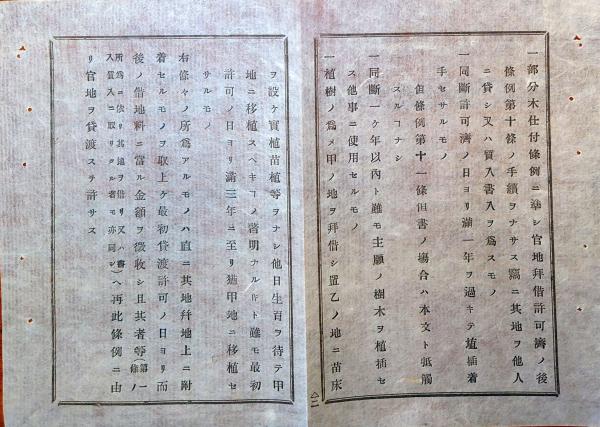 一部分木仕付條例ニ準シ官地拜借許可濟ノ後
條例第十條ノ手續ヲナサス竊ニ其地ヲ他人
ニ貸シ又ハ質入書入ヲ爲スモノ
一同斷許可濟ノ日ヨリ滿一年ヲ過キテ植插着
手セサルモノ
但條例第十一條但書ノ場合ハ本文ト牴觸
スルコナシ
一同斷一ケ年以內ト雖モ主願ノ樹木ヲ植插セ
ス他事ニ使用セルモノ
一植樹ノ爲メ甲ノ地ヲ拜借シ置乙ノ地ニ苗床
ヲ設ケ實植苗植等ヲナシ他日生育ヲ待テ甲
地ニ移植スヘキコノ證明ナル雖モ最初
許可ノ日ヨリ滿三年ニ至リ猶甲地ニ移植セ
サルモノ
右條々ノ所爲アルモノハ直ニ其地幷地上ニ附
着セルモノヲ取上ケ最初貸渡許可ノ日ヨリ而
後ノ借地料ニ當ル金額ヲ徵收シ且其者等(第一條ノ
所爲ニ依リ其地ヲ借リ又ハ書入質入ニ取リタル者モ亦同シ)ヘ再此條例ニ由
リ官地ヲ貸渡ステ許サス
二